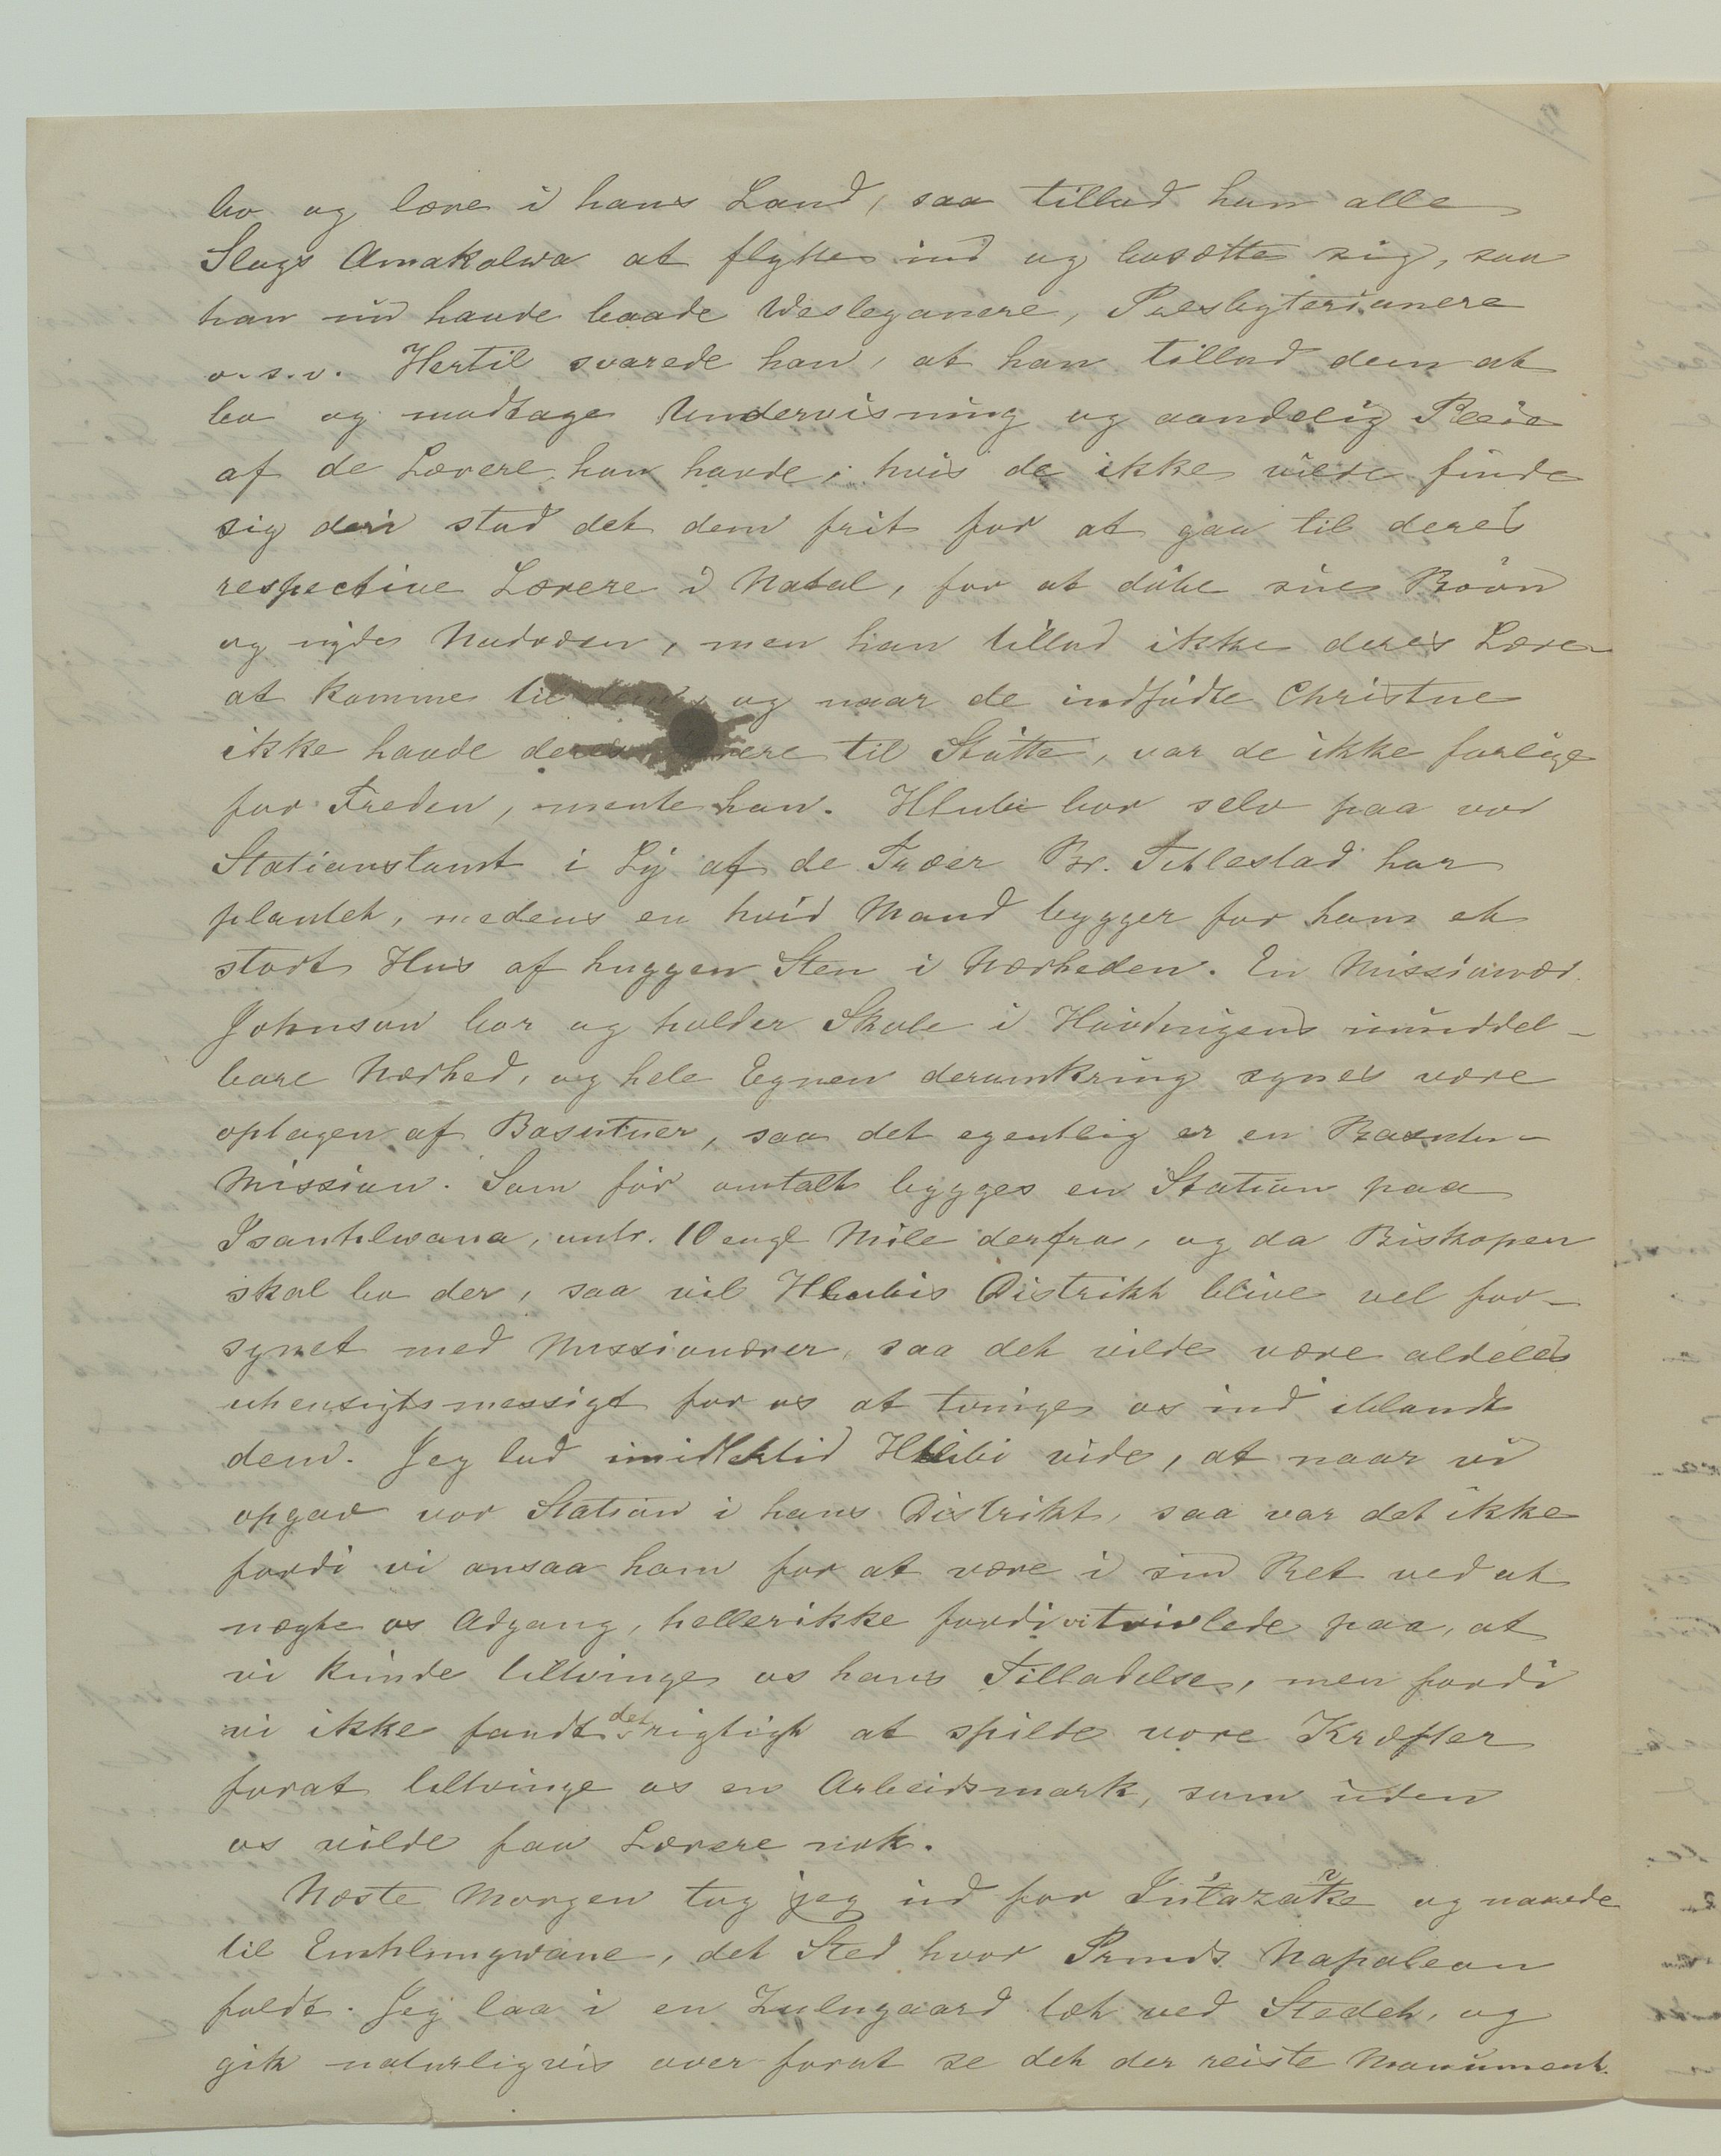 bo og lære i hans Land, saa tillod han alle
Slags Amakolwa at flytte ind og bosætte sig, saa
han nu havde baade Wesleyanere, Presbyterianere
o.s.v. Hertil svarede han, at han tillod dem at
bo og modtage Undervisning og aandelig Pleie
af de Lærere, han havde; hvis de ikke vilde finde
sig deri stod det dem frit for at gaa til deres
respective Lærere i Natal, for at døbe sine Børn
og nyde Nadveren, men han tillod ikke deres Lærer
at komme til dem, og naar de indfødte Christne
ikke havde deres Lærere til Støtte, var de ikke farlige
for Freden, mente han. Hlubi bor selv paa vor
Stationstomt i Ly af de Træer Br. Tiblestad har
plantet, medens en hvid Mand bygger for ham et
stort Hus af huggen Sten i Nærheden. En Missionær
Johnson bor og holder Skole i Høvdingens umiddel-
bare Nærhed, og hele Egnen deromkring synes være
optagen af Basutuer, saa det egentlig er en Basutu-
Mission. Som før omtalt bygges en Station paa
Isanhlwana, omtr. 10 engl Mile derfra, og da Biskopen
skal bo der, saa vil Hlubis Distrikt blive vel for-
synet med Missionærer, saa det vilde være aldeles
uhensigtsmessigt for os at tvinge os ind iblandt
dem. Jeg lod imidlertid Hlubi vide, at naar vi
opgav vor Station i hans Distrikt, saa var det ikke
fordi vi ansaa ham for at være i sin Ret ved at
nægte os Adgang, hellerikke fordi vi tvivlede paa, at
vi kunde tiltvinge os hans Tilladelse, men fordi
vi ikke fandt det rigtigt at spilde vore Kræfter
forat tiltvinge os en Arbeidsmark, som uden
os vilde faa Lærere nok.
Næste Morgen tog jeg ud for og naaede
til Emhlungwane, det Sted hvor Prinds Napoleon
faldt. Jeg laa i en Zulugaard tæt ved Stedet, og
gik naturligvis over forat se det der reiste Monument.